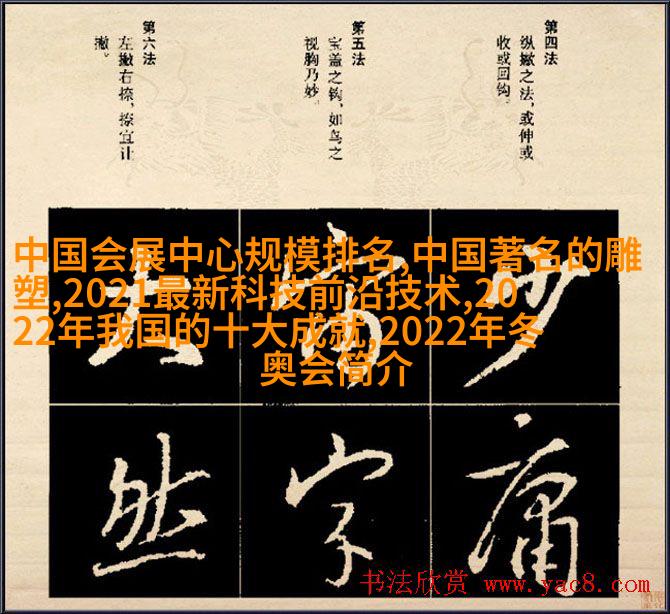 第四法
纵撇之法，或伸或
收或回钩。
第五法
宝盖之钩，如鸟之
视胸乃妙。
第六法
左撇右捺，捺宜让
撇。
中国会展中心规模排名,中国著名的雕
塑,2021最新科技前沿技术,20
22年我国的十大成就,2022年冬
奥会简介
少
庸
字
然
书法欣赏 www.yac8.com